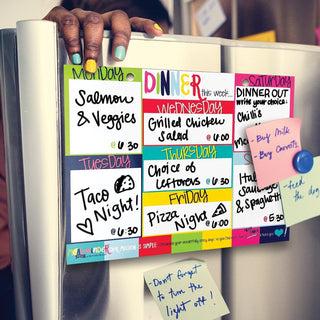 MONDAY
Salmon
& Veggies
@ 6:30
TUESDAY
Taco
Night!
@ 6:30
DINNER
this week...
WEDNESDAY
Grilled Chicken
Salad @ 6:00
THURSDAY
Choice of
Leftovers @ 6:30
FRIDAY
Pizza Night
@ 6:00
SATURDAY
DINNER OUT
write your choice:
Chili's
& Spaghetti
@ 5:30
- Buy Milk
- Buy Carrots
- Feed
the dog
- Don't forget
to turn the
light off!